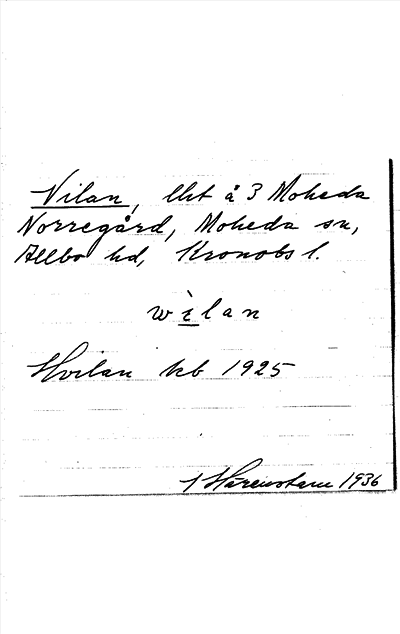 Vilan, lht å 3 Moheda
Norregård, Moheda sn,
Allbo hd, Kronobs l.
wìlan
Hvilan kb 1925
1 Härenstam 1936